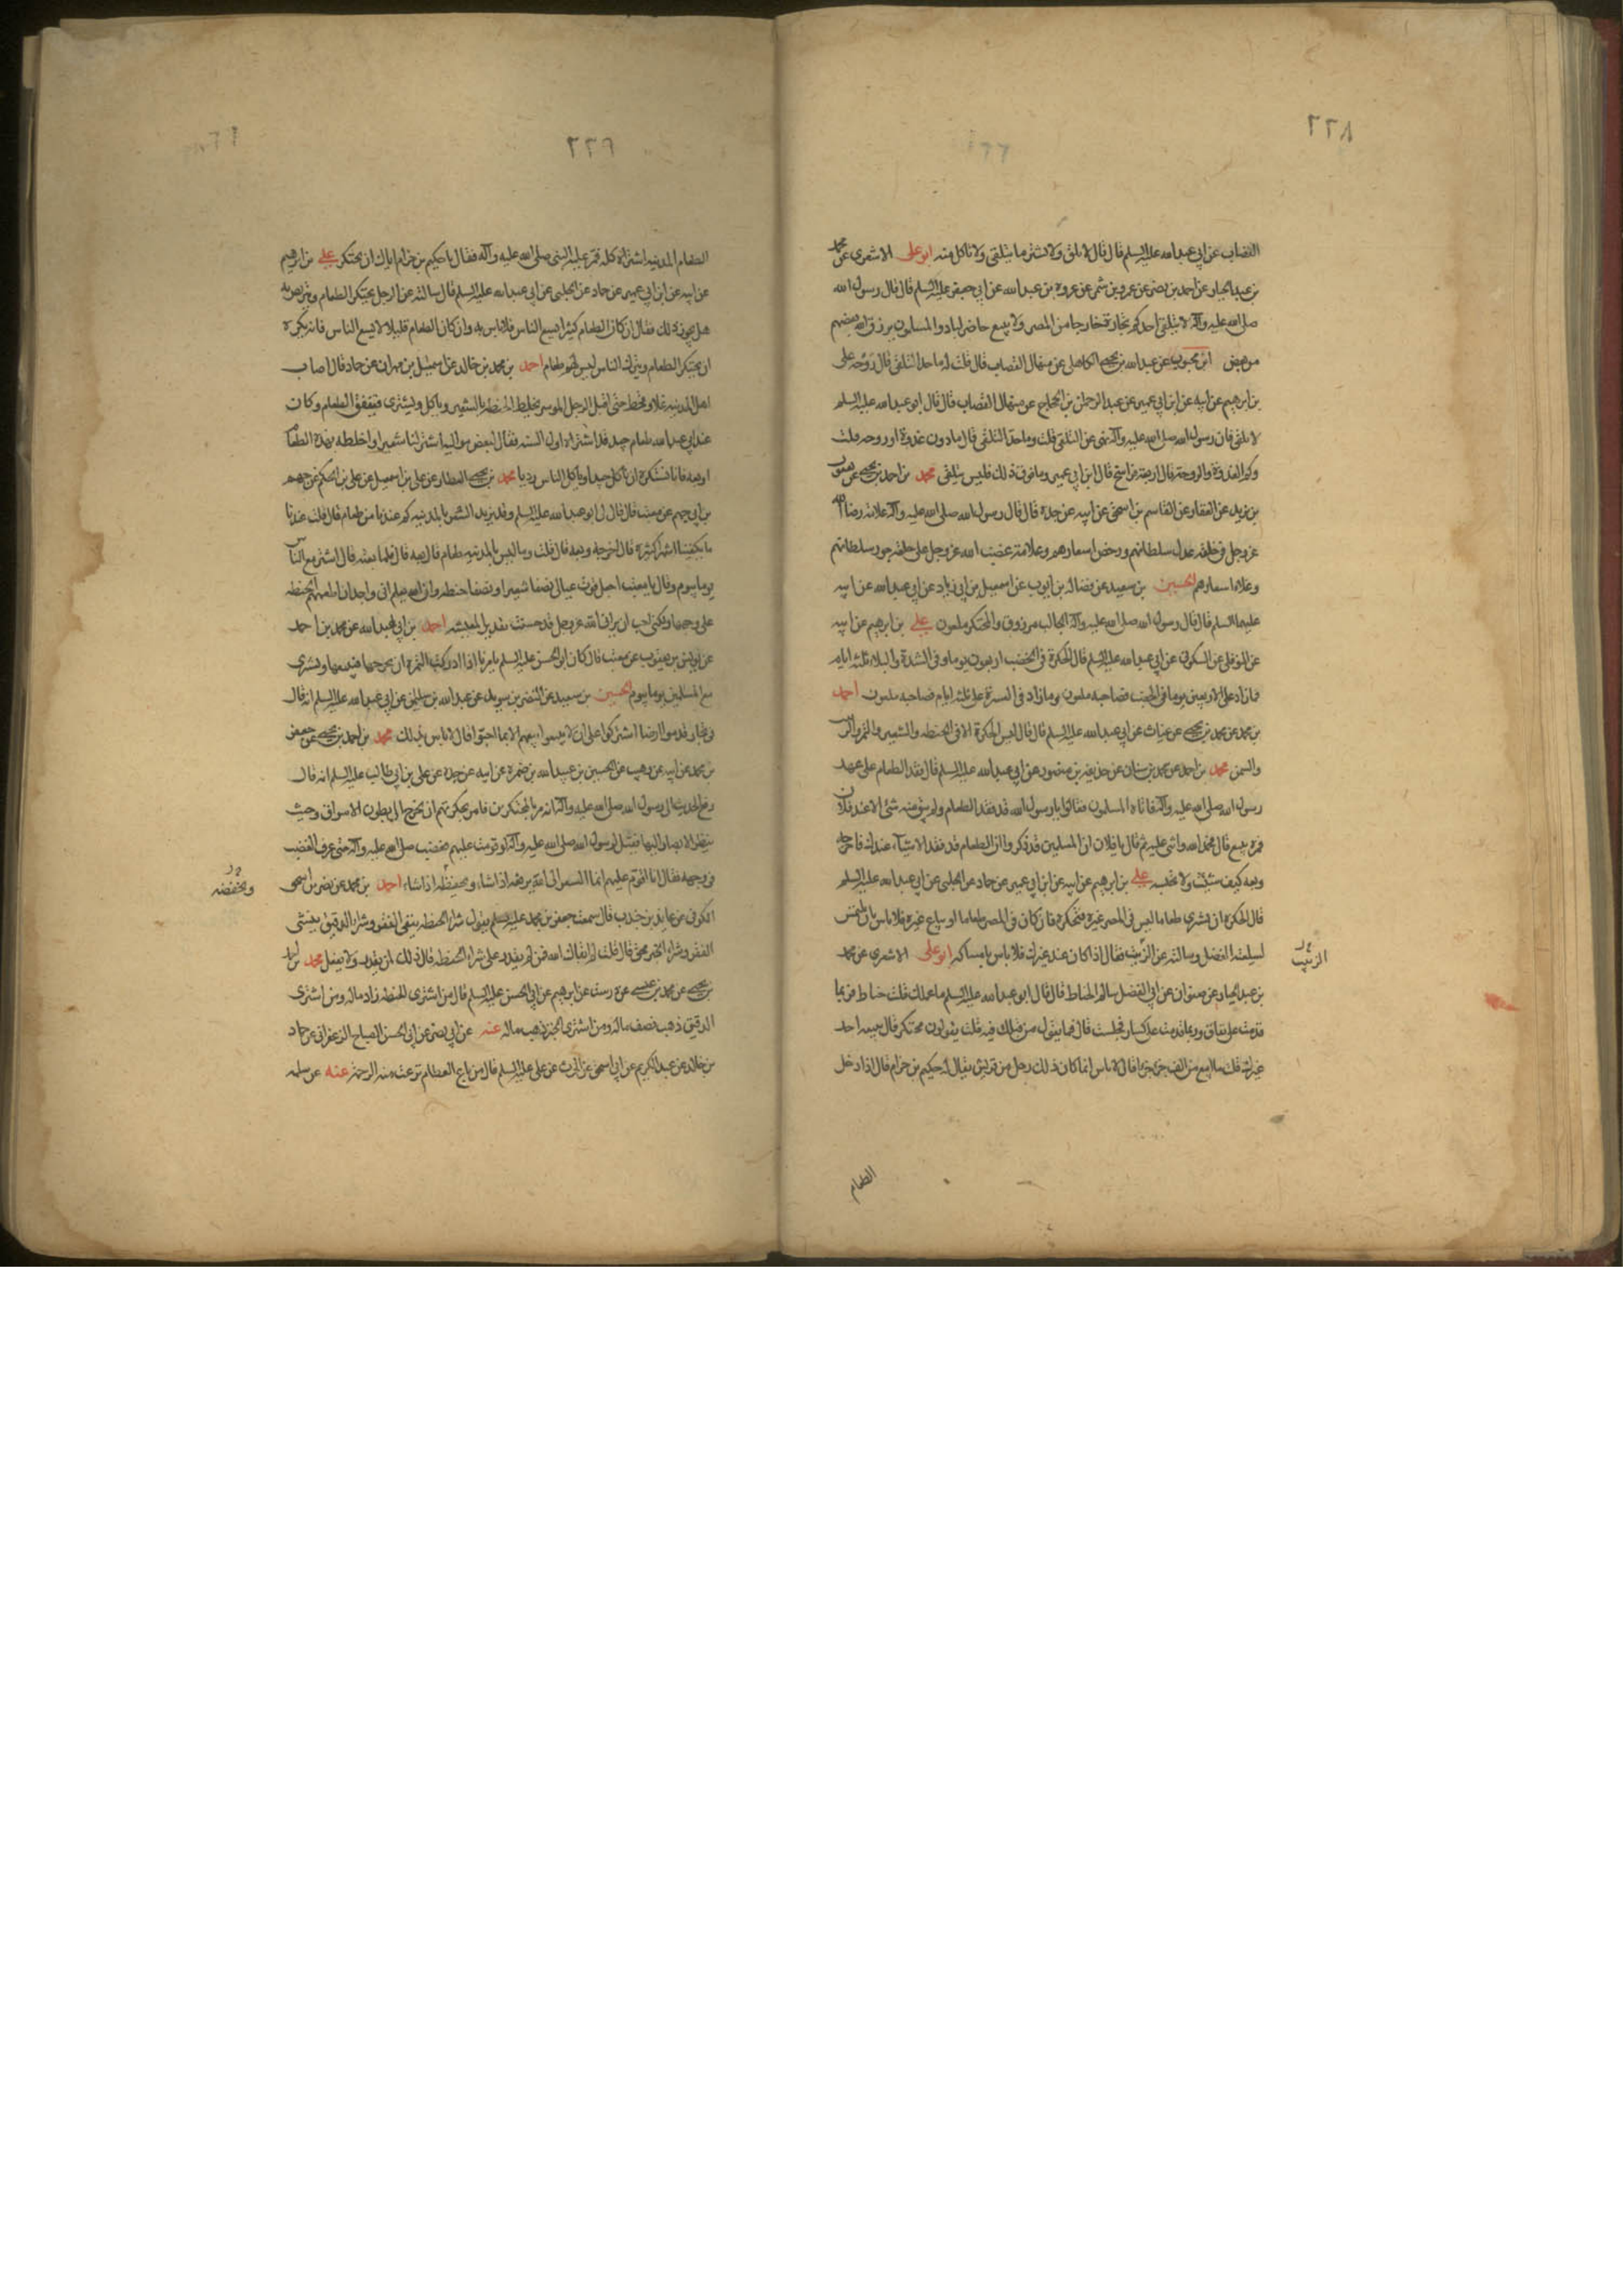 ٢٢٨
القصاب عن ابي عبد الله عليه السلم قال قال لا تلق ولا تشتر ما يتلقى ولا تاكل منه ابو على الاشعرى عن محمد
بن عبد الجبار عن احمد بن نضر عن عمرو بن شمر عن عروة بن عبد الله عن ابي جعفر عليه السلم قال قال رسول الله
صلى الله عليه وآله لا يتلقى احدكم تجارة خارجا من المصر ولا يبيع حاضر لباد والمسلمون يرزق الله بعضهم
من بعض ابن محبوب عن عبد الله بن يحيى الكاهلى عن منهال القصاب قال قلت له ما حد التلقى قال روحه على
بن ابرهيم عن ابيه عن ابن ابي عمير عن عبد الرحمن بن الحجاج عن منهال القصاب قال قال ابو عبد الله عليه السلم
لا تلقى فان رسول الله صلى الله عليه وآله نهى عن التلقى قلت وما حد التلقى قال ما دون غدوة او روحه قلت
وكم الغدوة والروحة قال اربعة فراسخ قال ابن ابي عمير وما فوق ذلك فليس بتلقى محمد بن احمد بن يحيى عن يعقوب
بن يزيد عن الغفار عن القاسم بن اسحق عن ابيه عن جده قال قال رسول الله صلى الله عليه وآله علامة رضا الله
عز وجل فى خلقه عدل سلطانهم ورخص اسعارهم وعلامة غضب الله عز وجل على خلقه جور سلطانهم
وغلاء اسعارهم الحسين بن سعيد عن فضالة بن ايوب عن اسمعيل بن ابي زياد عن ابي عبد الله عن ابيه
عليهما السلم قال قال رسول الله صلى الله عليه وآله الجالب مرزوق والمحتكر ملعون على بن ابرهيم عن ابيه
عن النوفلى عن السكونى عن ابي عبد الله عليه السلم قال الحكرة فى الخصب اربعون يوما وفى الشدة والبلاء ثلثة ايام
فما زاد على الاربعين يوما فى الخصب فصاحبه ملعون وما زاد فى العسرة على ثلثة ايام فصاحبه ملعون احمد
بن محمد عن محمد بن يحيى عن غياث عن ابي عبد الله عليه السلم قال قال ليس الحكرة الا فى الحنطه والشعير والتمر والزبيب
والسمن محمد بن احمد عن محمد بن سنان عن حذيفه بن منصور عن ابي عبد الله عليه السلم قال نفد الطعام على عهد
رسول الله صلى الله عليه وآله فاتاه المسلمون فقالوا يا رسول الله قد نفد الطعام ولم يبق منه شئ الا عند فلان
فمره ببيع قال فحمد الله واثنى عليه ثم قال يا فلان ان المسلمين قد ذكروا ان الطعام قد فقد الا شيئا عندك فاخرجه
وبعه كيف شئت ولا تحبسه على بن ابرهيم عن ابيه عن ابن ابي عمير عن حماد عن الحلبى عن ابي عبد الله عليه السلم
قال الحكرة ان يشترى طعاما ليس فى المصر غيره فتحتكره فان كان فى المصر طعاما او يباع غيره فلا باس بان يلتمس
لسلعته الفضل وسالته عن الزيت فقال اذا كان عند غيرك فلا باس بامساكه ابو على الاشعرى عن محمد
بن عبد الجبار عن صفوان عن ابي الفضل سالم الحناط قال قال ابو عبد الله عليه السلم ما عملك قلت حناط فربما
قدمت على نفاق وربما قدمت على كساد فحبست قال فما يقول من قبلك فيه قلت يقولون محتكر قال يبيعه احد
غيرك قلت ما ابيع من الف جزء جزءا قال لا باس انما كان ذلك رجل من قريش يقال له حكيم بن حزام قال اذا دخل
الزبيب
الطعام
٢٢٩
الطعام المدينه اشتراه كله فمر عليه النبى صلى الله عليه وآله فقال يا حكيم بن حزام اياك ان تحتكر على بن ابرهيم
عن ابيه عن ابن ابي عمير عن حماد عن الحلبى عن ابي عبد الله عليه السلم قال سالته عن الرجل يحتكر الطعام ويتربص به
هل يجوز ذلك فقال ان كان الطعام كثيرا يسع الناس فلا باس به وان كان الطعام قليلا لا يسع الناس فانه يكره
ان يحتكر الطعام ويترك الناس ليس لهم طعام احمد بن محمد بن خالد عن اسمعيل بن مهران عن حماد قال اصاب
اهل المدينه غلاء وقحط حتى اقبل الرجل الموسر يخلط الحنطه بالشعير وياكل ويشترى فينفق الطعام وكان
عند ابي عبد الله طعام جيد قد اشتراه اول السنه فقال لبعض مواليه اشتر لنا شعيرا واخلطه بهذه الطعام
او بعه فانا نكره ان ناكل جيدا وياكل الناس رديا محمد بن يحيى العطار عن على بن اسمعيل عن على بن الحكم عن جهم
بن ابي جهم عن معتب قال قال لى ابو عبد الله عليه السلم وقد يزيد السعر بالمدينه كم عندنا من طعام قال قلت عندنا
ما يكفينا اشهر كثيرة قال اخرجه وبعه قال قلت وما ليس بالمدينه طعام قال بعه قال فلما بعته قال اشتر مع الناس
يوما بيوم وقال يا معتب اجعل قوت عيالى نصفا شعيرا ونصفا حنطه وان الله يعلم انى واجد ان اطعمهم الحنطه
على وجهها ولكنى احب ان يرانى الله عز وجل قد حسنت تقدير المعيشه احمد بن ابي عبد الله عن محمد بن احمد
عن يونس بن يعقوب عن معتب قال كان ابو الحسن عليه السلم يامرنا اذا ادركت الثمرة ان نخرجها فنبيعها ونشترى
مع المسلمين يوما بيوم الحسين بن سعيد عن النضر بن سويد عن عبد الله بن سليمن عن ابي عبد الله عليه السلم انه قال
فى تجار قدموا ارضا اشتركوا على ان لا يبيعوا بيعهم الا بما احبوا قال لا باس بذلك محمد بن احمد بن يحيى عن جعفر
بن محمد عن ابيه عن وهب عن الحسين بن عبيد الله بن ضمره عن ابيه عن جده عن على بن ابي طالب عليه السلم انه قال
رفع الحديث الى رسول الله صلى الله عليه وآله انه مر بالمحتكرين فامر بحكرتهم ان تخرج الى بطون الاسواق وحيث
ينظر الابصار اليها فقيل لرسول الله صلى الله عليه وآله لو قومت عليهم فغضب صلى الله عليه وآله حتى عرف الغضب
فى وجهه فقال انا اقوم عليهم انما السعر الى الله يرفعه اذا شاء ويحفظه اذا شاء احمد بن محمد عن نصر بن اسحق
ويخفضه
الكوفى عن عايذ بن جندب قال سمعت جعفر بن محمد عليه السلم يقول شراء الحنطه ينفى الفقر وشراء الدقيق ينشئ
الفقر وشراء الخبز محق قال قلت له ابقاك الله فمن لم يقدر على شراء الحنطه قال ذلك لمن يقدر ولا يفعل محمد بن احمد
بن يحيى عن محمد بن عيسى عن درست عن ابرهيم عن ابي الحسن عليه السلم قال من اشترى الحنطه زاد ماله ومن اشترى
الدقيق ذهب نصف ماله ومن اشترى الخبز ذهب ماله عنه عن ابي نصر عن ابي الحسن الصباح الزعفرانى عن حماد
بن خالد عن عبد الكريم عن ابي اسحق عن الحرث عن على عليه السلم قال من باع الطعام نزعت منه الرحمة عنه عن سلمه